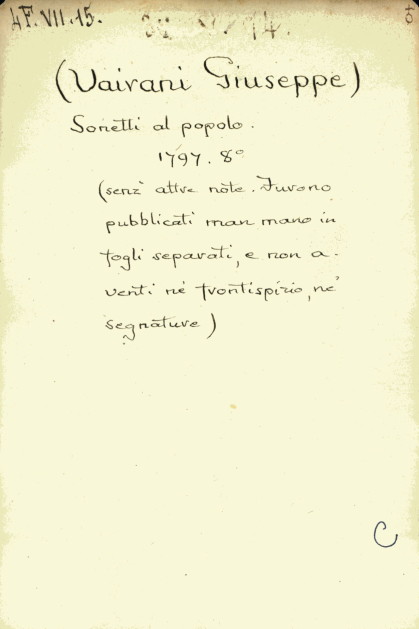 4F. VII. 15.
(Vairani Giuseppe)
Sonetti al popolo.
1797. 8°
(senz' altre note. Furono
pubblicati man mano in
fogli separati, e non a-
venti nè frontispizio, nè
segnature)
C